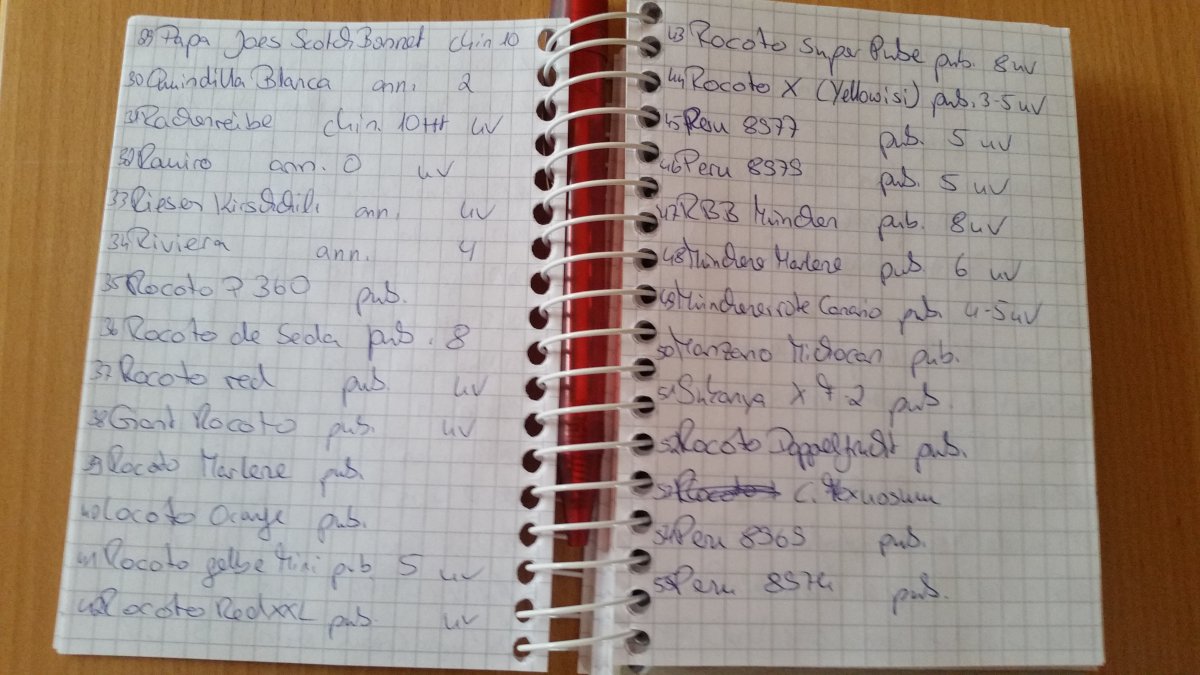 29 Papa Joes Scotch Bonnet chin 10
30 Guindilla Blanca ann. 2
31 Rachenreibe chin. 10++ uv
32 Ramiro ann. 0 uv
33 Riesen Kirschchili ann. uv
34 Riviera ann. 4
35 Rocoto P 360 pub.
36 Rocoto de Seda pub. 8
37 Rocoto red pub. uv
38 Giant Rocoto pub. uv
39 Rocoto Marlene pub.
40 Locoto Orange pub.
41 Rocoto gelbe Mini pub 5 uv
42 Rocoto Red XXL pub. uv
43 Rocoto Super Pube pub. 8 uv
44 Rocoto X (Yellowisi) pub. 3-5 uv
45 Peru 8977 pub. 5 uv
46 Peru 8979 pub. 5 uv
47 RBB München pub. 8 uv
48 Münchene Marlene pub 6 uv
49 Münchener rote Canario pub. 4-5 uv
50 Manzano Michocan pub.
51 X 7.2 pub.
52 Rocoto Doppelfrucht pub.
53 Rocoto C. flexuosum
54 Peru 8969 pub.
55 Peru 8974 pub.